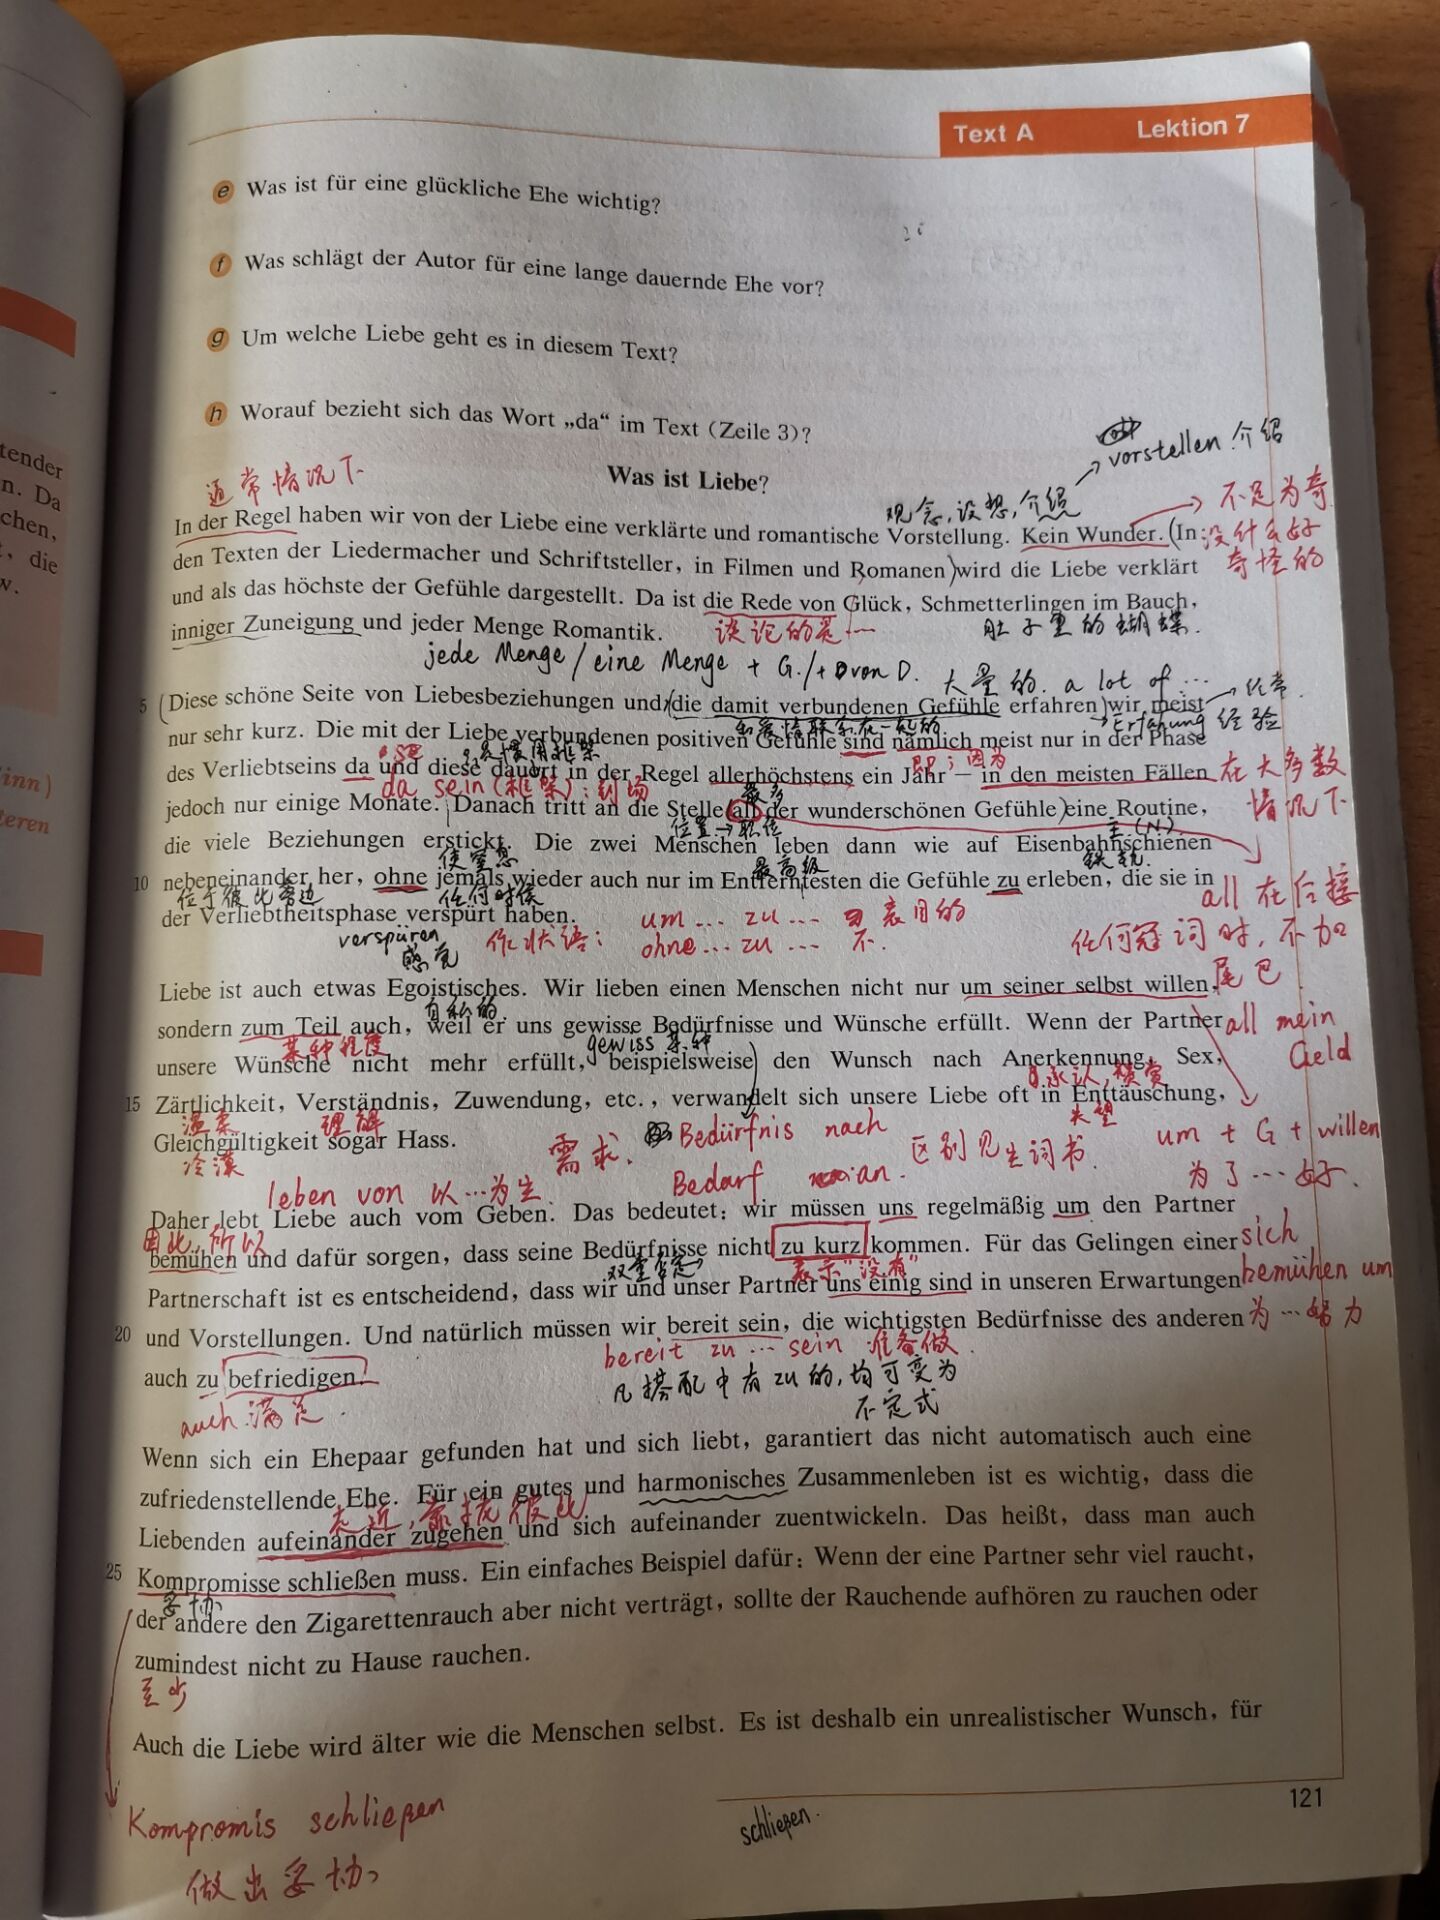 tender
n. Da
chen,
t, die
w.
inn)
teren
Text A Lektion 7
e Was ist für eine glückliche Ehe wichtig?
f Was schlägt der Autor für eine lange dauernde Ehe vor?
g Um welche Liebe geht es in diesem Text?
h Worauf bezieht sich das Wort „da“ im Text (Zeile 3)?
vorstellen 介绍
通常情况下
Was ist Liebe?
观念,设想,介绍
不足为奇
In der Regel haben wir von der Liebe eine verklärte und romantische Vorstellung. Kein Wunder. (In
没什么好
den Texten der Liedermacher und Schriftsteller, in Filmen und Romanen) wird die Liebe verklärt
奇怪的
und als das höchste der Gefühle dargestellt. Da ist die Rede von Glück, Schmetterlingen im Bauch,
inniger Zuneigung und jeder Menge Romantik.
谈论的是…
肚子里的蝴蝶
jede Menge / eine Menge + G. /+ von D. 大量的. a lot of …
5 (Diese schöne Seite von Liebesbeziehungen und (die damit verbundenen Gefühle erfahren) wir meist
经常
和爱情联系在一起的
Erfahrung 经验
nur sehr kurz. Die mit der Liebe verbundenen positiven Gefühle sind nämlich meist nur in der Phase
即;因为
des Verliebtseins da und diese dauert in der Regel allerhöchstens ein Jahr – in den meisten Fällen
在大多数
情况下
da sein (框架): 到场
最多
jedoch nur einige Monate. Danach tritt an die Stelle (all der wunderschönen Gefühle) eine Routine,
位置→职位
主(N)
die viele Beziehungen erstickt. Die zwei Menschen leben dann wie auf Eisenbahnschienen
使窒息
最高级
铁轨.
10 nebeneinander her, ohne jemals wieder auch nur im Entferntesten die Gefühle zu erleben, die sie in
位于彼此旁边
任何时候
all 在后接
der Verliebtheitsphase verspürt haben.
um … zu … 表目的
任何冠词时,不加
尾巴
verspüren
感觉
作状语:
ohne … zu … 不.
Liebe ist auch etwas Egoistisches. Wir lieben einen Menschen nicht nur um seiner selbst willen,
自私的.
sondern zum Teil auch, weil er uns gewisse Bedürfnisse und Wünsche erfüllt. Wenn der Partner
all mein
Geld
某种程度
gewiss 某种
unsere Wünsche nicht mehr erfüllt, beispielsweise) den Wunsch nach Anerkennung, Sex,
承认,赞赏
15 Zärtlichkeit, Verständnis, Zuwendung, etc., verwandelt sich unsere Liebe oft in Enttäuschung,
温柔
理解
失望
Gleichgültigkeit sogar Hass.
冷漠
需求.
Bedürfnis nach
Bedarf an.
区别见生词书.
um + G + willen
为了…好.
leben von 以…为生
Daher lebt Liebe auch vom Geben. Das bedeutet: wir müssen uns regelmäßig um den Partner
因此,所以
bemühen und dafür sorgen, dass seine Bedürfnisse nicht zu kurz kommen. Für das Gelingen einer
sich
bemühen um
为…努力
双重否定
表示“没有”
Partnerschaft ist es entscheidend, dass wir und unser Partner uns einig sind in unseren Erwartungen
20 und Vorstellungen. Und natürlich müssen wir bereit sein, die wichtigsten Bedürfnisse des anderen
bereit zu … sein 准备做.
auch zu befriedigen.
auch 满足.
凡搭配中有zu的,均可变为
不定式
Wenn sich ein Ehepaar gefunden hat und sich liebt, garantiert das nicht automatisch auch eine
zufriedenstellende Ehe. Für ein gutes und harmonisches Zusammenleben ist es wichtig, dass die
走近,靠拢彼此
Liebenden aufeinander zugehen und sich aufeinander zuentwickeln. Das heißt, dass man auch
25 Kompromisse schließen muss. Ein einfaches Beispiel dafür: Wenn der eine Partner sehr viel raucht,
妥协
der andere den Zigarettenrauch aber nicht verträgt, sollte der Rauchende aufhören zu rauchen oder
zumindest nicht zu Hause rauchen.
至少
Auch die Liebe wird älter wie die Menschen selbst. Es ist deshalb ein unrealistischer Wunsch, für
Kompromis schließen
做出妥协
schließen.
121